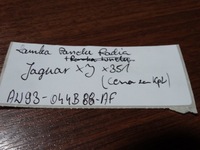 Ramka Panelu Radia
+ Ramka
Jaguar XJ X351
(cena za kpl)
AW93-044B88-AF